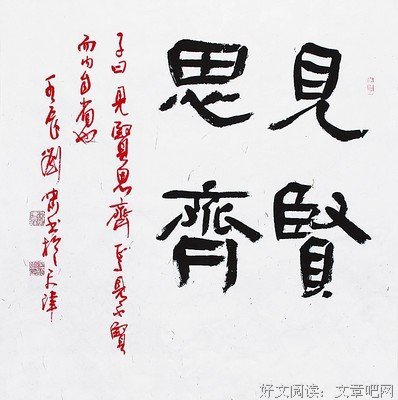 見賢
思齊
子曰見賢思齊焉見不賢
而内自省也
壬辰劉书於天津
好文阅读：文章吧网